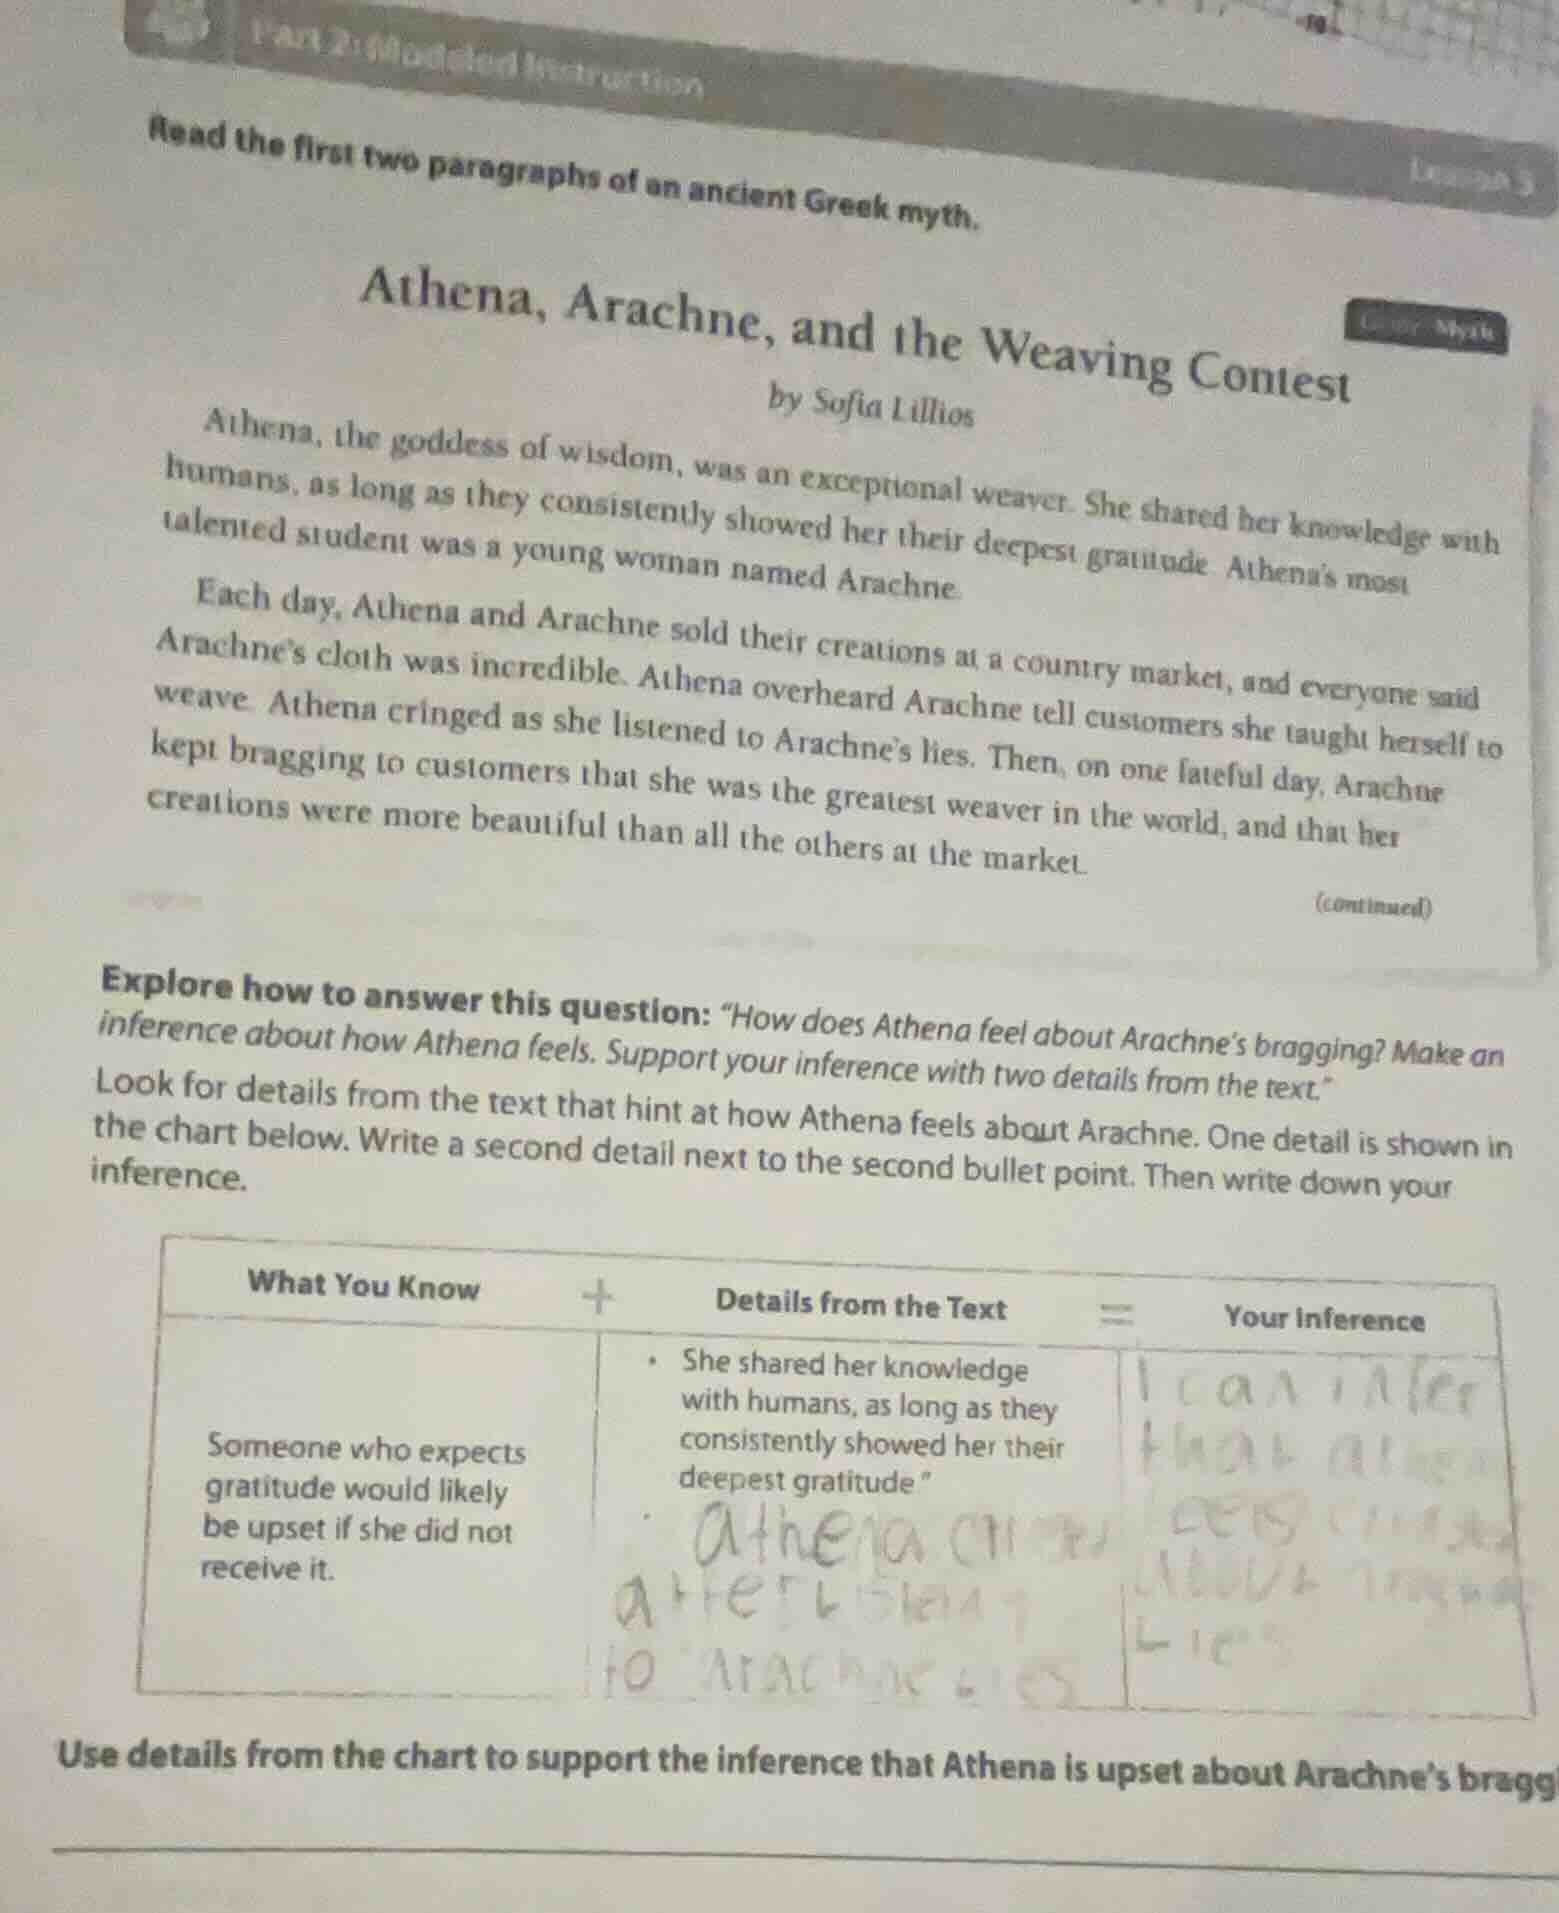 Part 2: Modeled Instruction
Lesson 3
Read the first two paragraphs of an ancient Greek myth.
Genre: Myth
Athena, Arachne, and the Weaving Contest
by Sofia Lillios
Athena, the goddess of wisdom, was an exceptional weaver. She shared her knowledge with
humans, as long as they consistently showed her their deepest gratitude. Athena's most
talented student was a young woman named Arachne.
Each day, Athena and Arachne sold their creations at a country market, and everyone said
Arachne's cloth was incredible. Athena overheard Arachne tell customers she taught herself to
weave. Athena cringed as she listened to Arachne's lies. Then, on one fateful day, Arachne
kept bragging to customers that she was the greatest weaver in the world, and that her
creations were more beautiful than all the others at the market.
(continued)
Explore how to answer this question: "How does Athena feel about Arachne's bragging? Make an
inference about how Athena feels. Support your inference with two details from the text."
Look for details from the text that hint at how Athena feels about Arachne. One detail is shown in
the chart below. Write a second detail next to the second bullet point. Then write down your
inference.
What You Know + Details from the Text = Your Inference
Someone who expects
gratitude would likely
be upset if she did not
receive it.
• She shared her knowledge
with humans, as long as they
consistently showed her their
deepest gratitude"
• athena
after
to arachne Lies
I can infer
that athena
about
Lies
Use details from the chart to support the inference that Athena is upset about Arachne's bragg